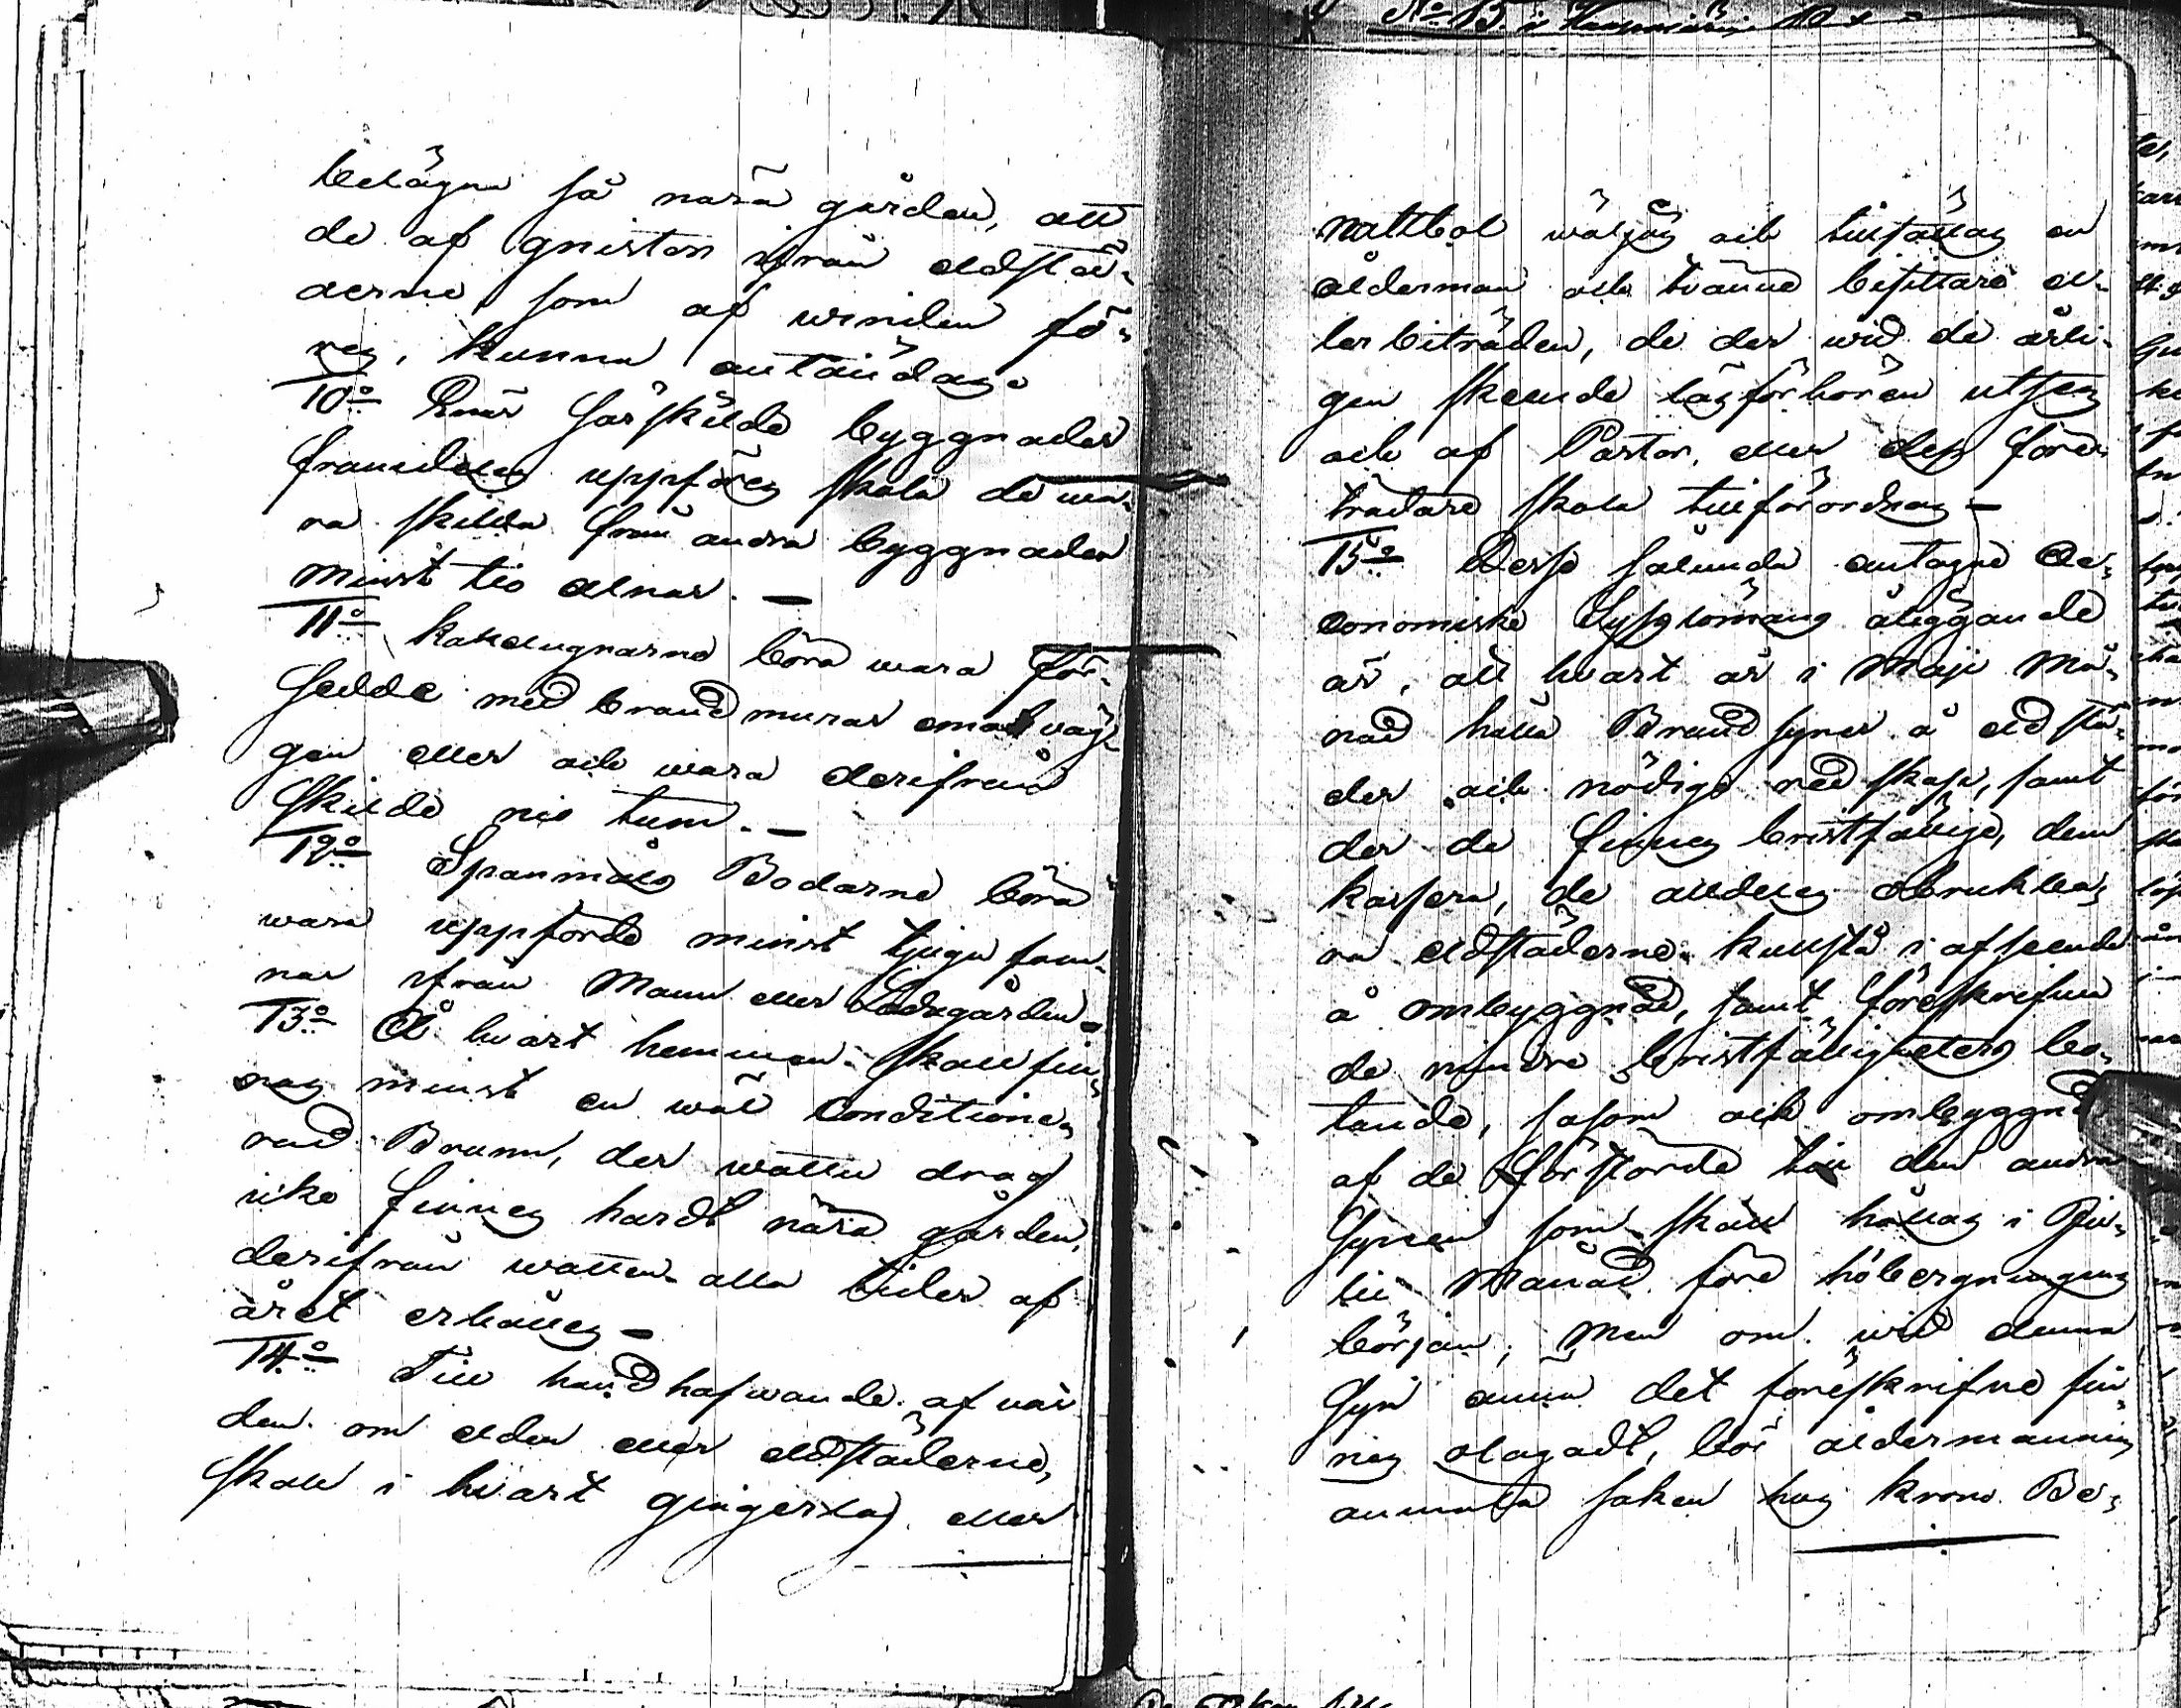 belägna så nära gården, att
de af gnistor ifrån eldstä-
derne som af winden fö-
res, kunna antändas
10o Enär särskilde byggnader
framdeles uppföres skola de wa-
ra skillda från andra byggnader
minst tio alnar. —
11o Kakelugnarne böra wara för-
sedde med brandmurar omot väg-
gen eller ock wara derifrån
Skilde nio tum. —
12o Spanmåls Bodarne böra
wara uppförde minst tjugu fam-
nar ifrån Mann eller Ladugården —
13o Å hwart hemman skall fin-
nas minst en wäl conditione-
rad Brunn, der watten drag
icke finnes hardt nära gården,
derifrån watten alla tider af
året erhålles —
14o Till handhafwande af vår
den om elden eller eldstäderne,
Skall i hwart gingerdag eller
No 15
nattbol wäljas och tillsättas en
ålderman och tvänne bisittare el-
ler biträden, de der wid de årli-
gen skeende läsförhören utses
och af Pastor, eller dess före-
trädare skola tillförordnas —
15o Desse sålunda antagne Oe-
conomiske Sysslomäns åliggande
är, att hvart år i Maji Må-
nad hålla Brand syner å eldstä-
der och nödige redskap, samt
der de finnes bristfällige, dem
kassera, de alldeles obrukba-
ra eldstäderne kullslå i afseende
å ombyggnad, samt föreskrifva
de mindre bristfälligheters bo-
tande, såsom ock ombyggnad
af de förstörde till den andra
Synen som skall hållas i Ju-
lii Månad före höbergningens
början; Men om wid denna
Syn ännu det föreskrifne fin-
nes olagadt, bör åldermannen
anmäla saken hos Krono Be-